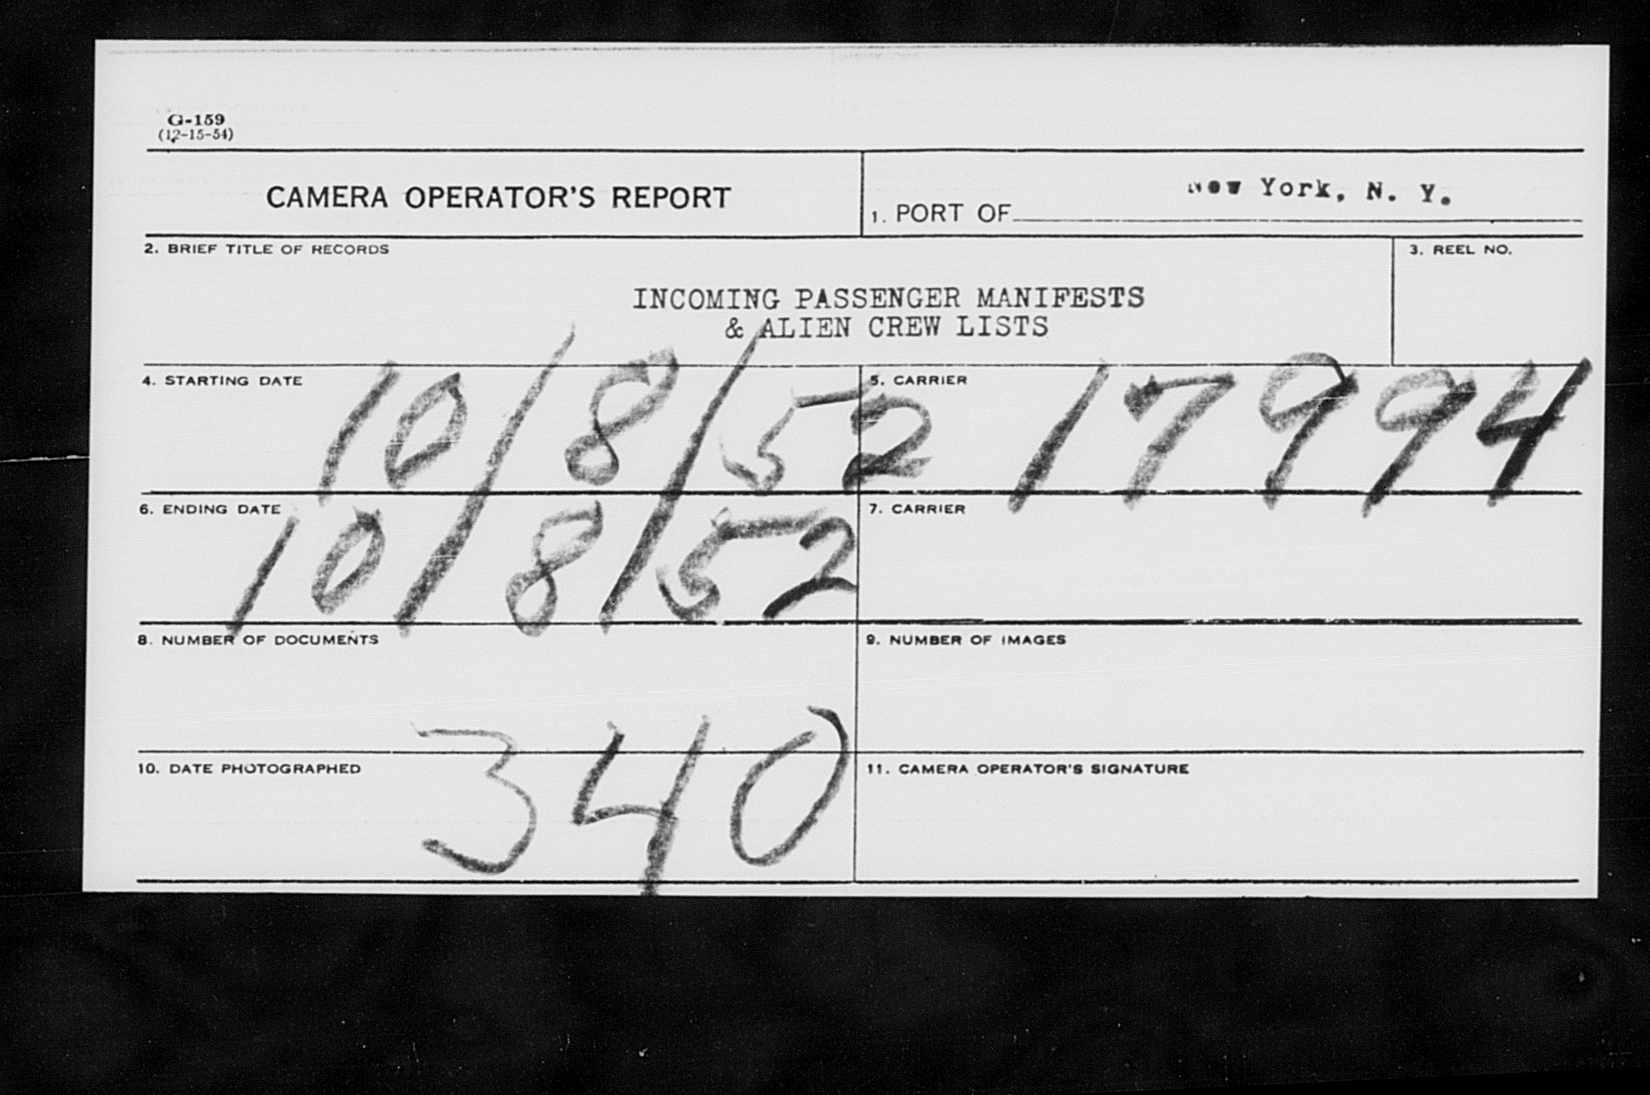 G-159
(12-15-54)
CAMERA OPERATOR'S REPORT
1. PORT OF New York, N. Y.
2. BRIEF TITLE OF RECORDS
3. REEL NO.
INCOMING PASSENGER MANIFESTS
& ALIEN CREW LISTS
4. STARTING DATE
10/8/52
5. CARRIER
17994
6. ENDING DATE
10/8/52
7. CARRIER
8. NUMBER OF DOCUMENTS
340
9. NUMBER OF IMAGES
10. DATE PHOTOGRAPHED
11. CAMERA OPERATOR'S SIGNATURE